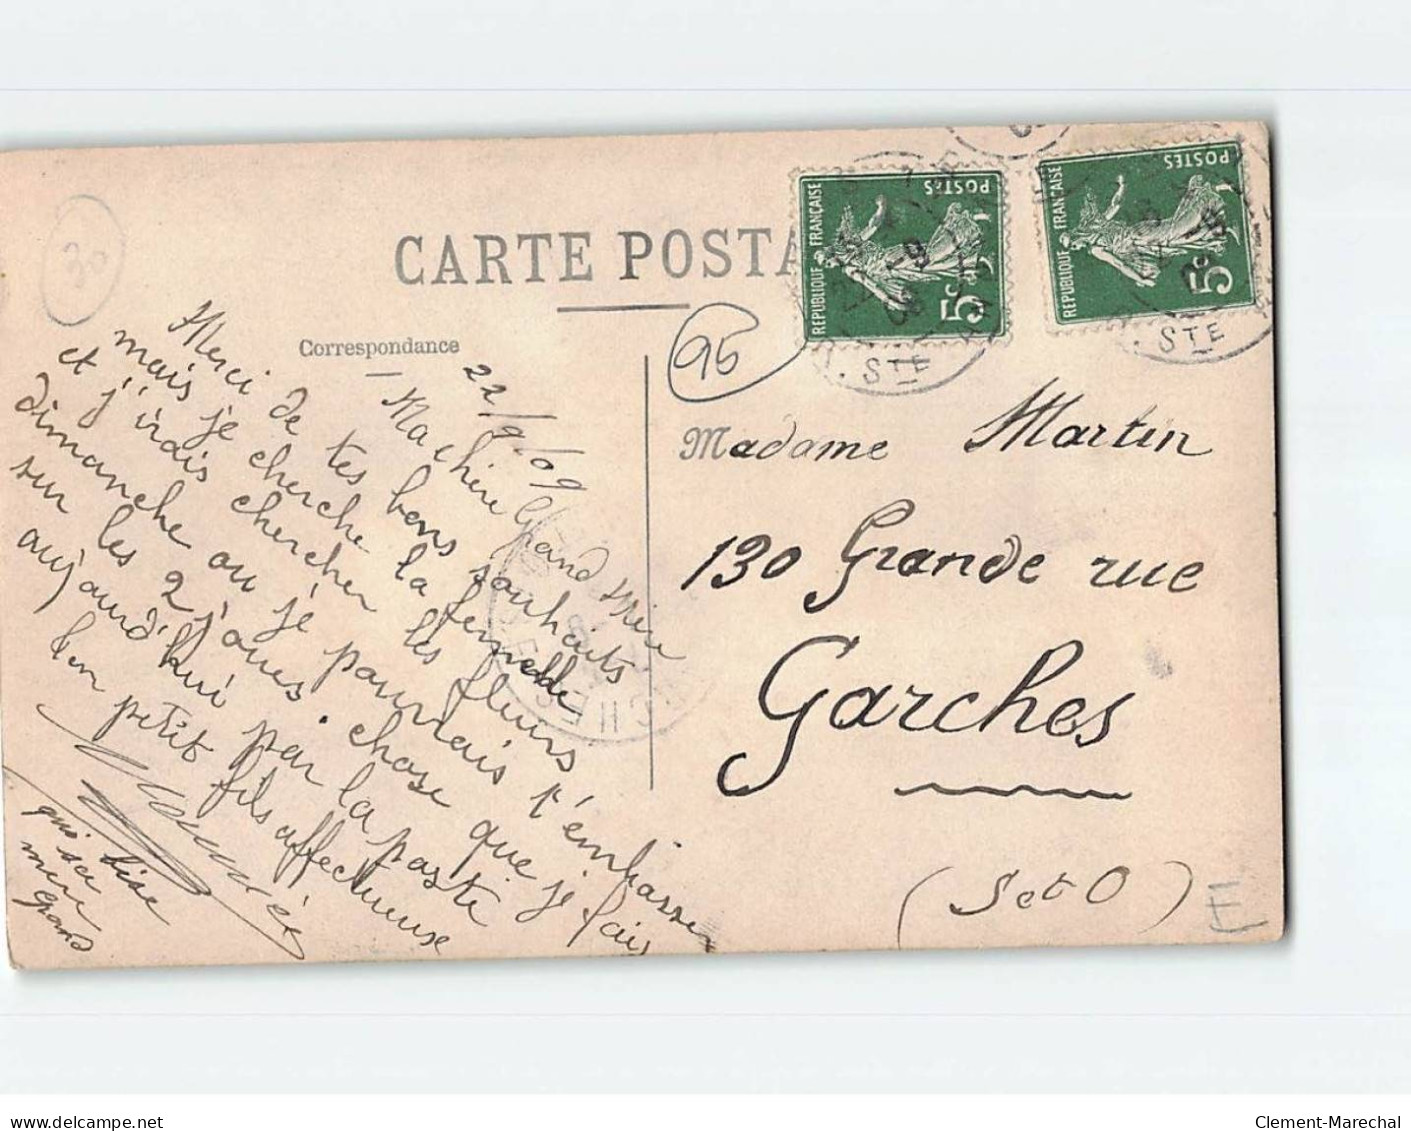 CARTE POSTA
Correspondance
30
95
22/9/09
Ma chère Grand Mère
Merci de tes bons souhaits
mais je cherche la femelle
et j'irais chercher les fleurs
dimanche ou je pourrais t'embrasser
sur les 2 joues. chose que je fais
aujourd'hui par la poste
ton petit fils affectueux
bise
grand
REPUBLIQUE FRANÇAISE
POSTES
5c
STE
REPUBLIQUE FRANÇAISE
POSTES
5c
STE
GARCHES
Madame Martin
130 Grande rue
Garches
(S et O)
delcampe.net
Clement-Marechal